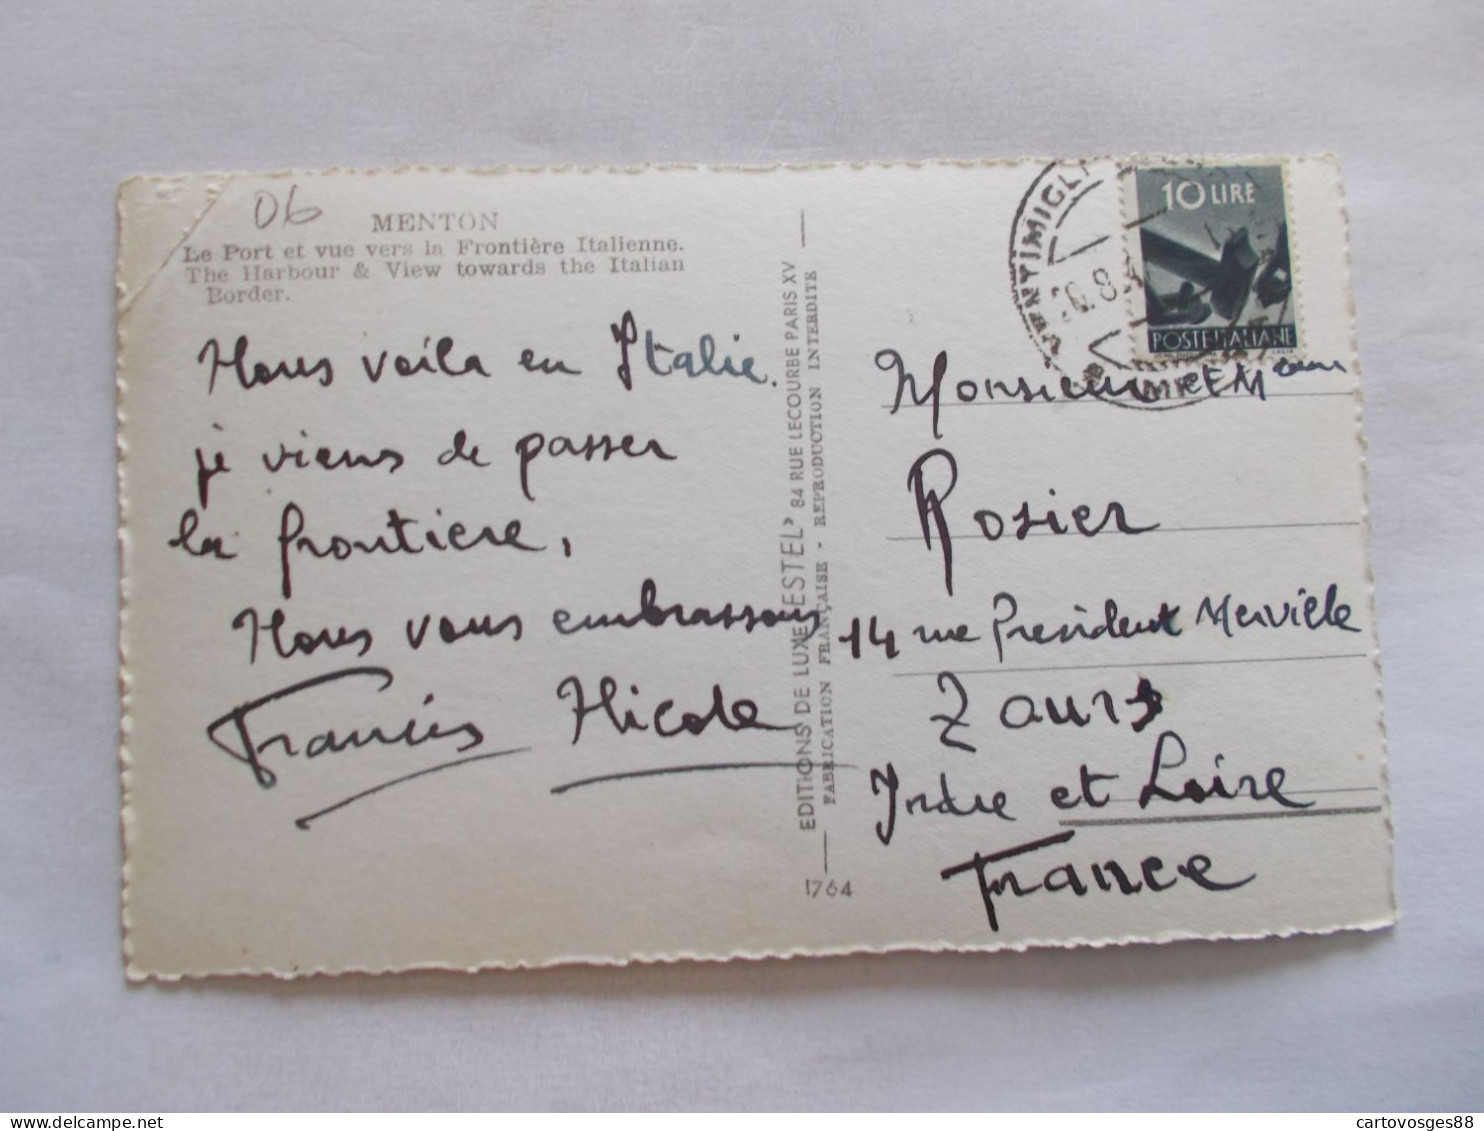 06
MENTON
Le Port et vue vers la Frontière Italienne.
The Harbour & View towards the Italian
Border.
Nous voila en Italie.
je viens de passer
la frontiere,
Nous vous embrassons
Francis Nicole
EDITIONS DE LUXE "ESTEL" 84 RUE LECOURBE PARIS XV
FABRICATION FRANÇAISE - REPRODUCTION INTERDITE
1764
VENTIMIGLIA
10 LIRE
POSTE ITALIANE
Monsieur et Mme
Rosier
14 rue President Merville
Tours
Indre et Loire
France
cartovosges88